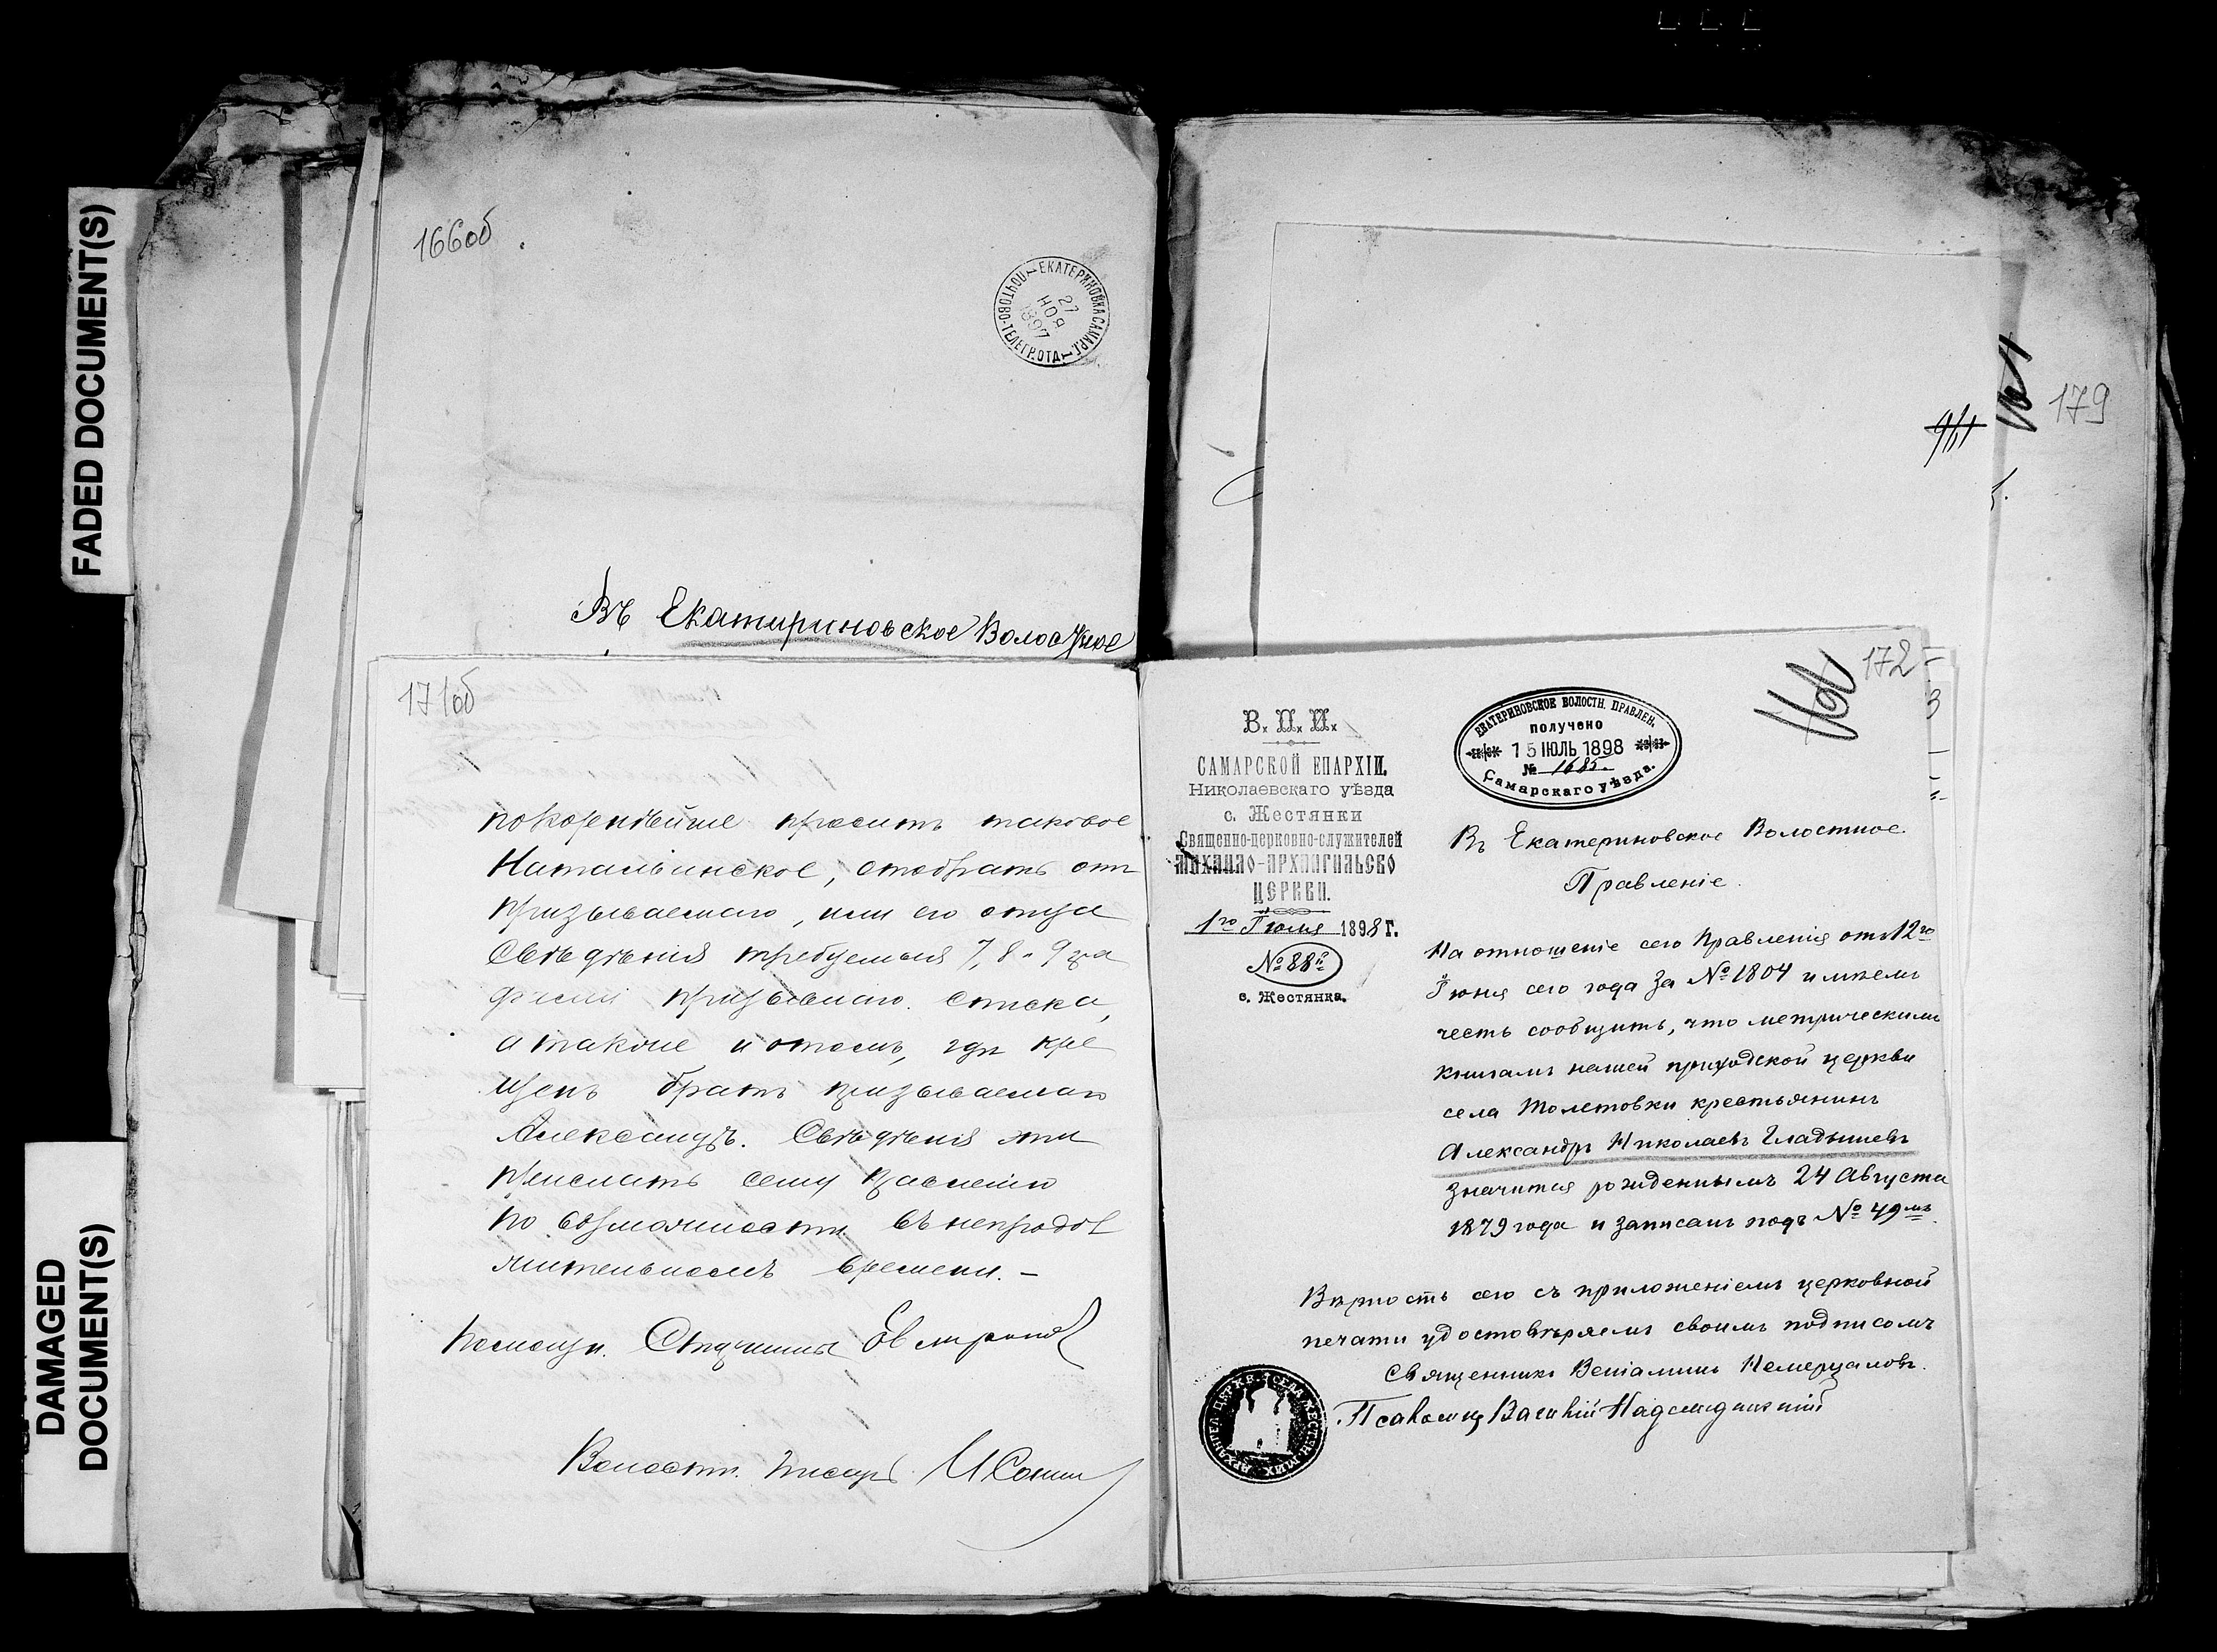 FADED DOCUMENT(S)
DAMAGED
DOCUMENT(S)
166об
ЕКАТЕРИНОВКА САМАР. Г.
ПОЧТОВО-ТЕЛЕГР. ОТД.
27
НОЯ
1897
Въ Екатериновское Волостное
171об
покорнѣйше просить таковое
Натальинское, отобрать отъ
призываемаго, или его отца
Свѣдѣнія требуемыя 7, 8 и 9
призывнаго списка,
а также и о томъ, гдѣ кре
щенъ братъ призываемаго
Александръ. Свѣдѣнія эти
прислать сему Правленію
по возможности въ непродол
жительномъ времени. –
Помощн. Старшины
Волостн. Писарь
179
172
В. П. И.
САМАРСКОЙ ЕПАРХІИ,
Николаевскаго уѣзда
с. Жестянки
Священно-церковно-служителей
МИХАИЛО-АРХАНГЕЛЬСКО
ЦЕРКВИ.
1го Іюля 1898 г.
№ 88й
с. Жестянка.
ЕКАТЕРИНОВСКОЕ ВОЛОСТН. ПРАВЛЕН.
получено
15 ІЮЛЬ 1898
№ 1685.
Самарскаго уѣзда.
Въ Екатериновское Волостное
Правленіе.
На отношеніе сего Правленія отъ 12го
Іюня сего года за № 1804 имѣемъ
честь сообщить, что метрическими
книгами нашей приходской церкви
села Толстовки крестьянинъ
Александръ Николаевъ Гладышевъ
значится рожденнымъ 24 Августа
1879 года и записанъ подъ № 49мъ
Вѣрность сего съ приложеніемъ церковной
печати удостовѣряемъ своимъ подписомъ
Священникъ Веніаминъ Немерцаловъ.
Псаломщ. Василій